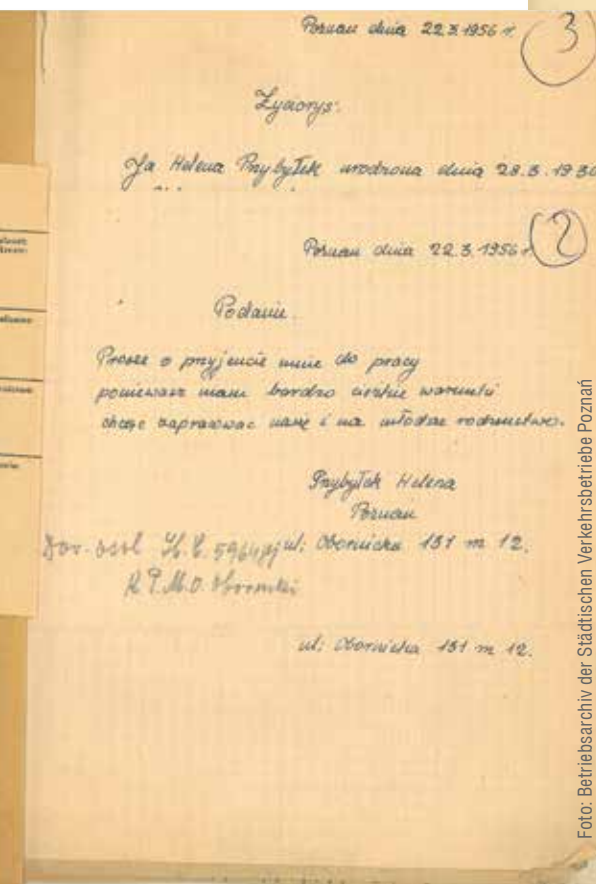 Poznań dnia 22.3.1956 r.
3
Życiorys.
Ja Helena Przybyłek urodzona dnia 28.3.1930
Poznań dnia 22.3.1956 r
2
Podanie.
Prosze o przyjencie mnie do pracy
poniewasz mam bardzo cieżkie warunki
chcąc zapracować na się i na młodze rodzeństwo.
Przybyłek Helena
Poznań
ul; Obornicka 151 m 12.
Dow. osob
ul; Obornicka 151 m 12.
Foto: Betriebsarchiv der Städtischen Verkehrsbetriebe Poznań